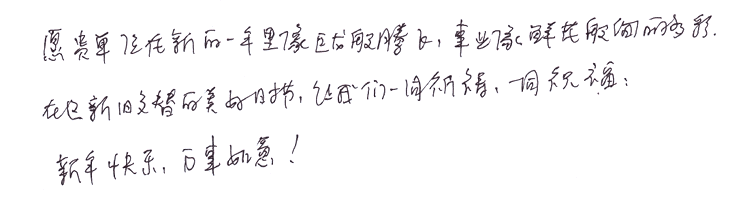 愿贵单位在新的一年里像巨龙般腾飞，事业像鲜花般绚丽多彩.
在这新旧交替的美好时节，让我们一同祈祷，一同祝福：
新年快乐，万事如意！